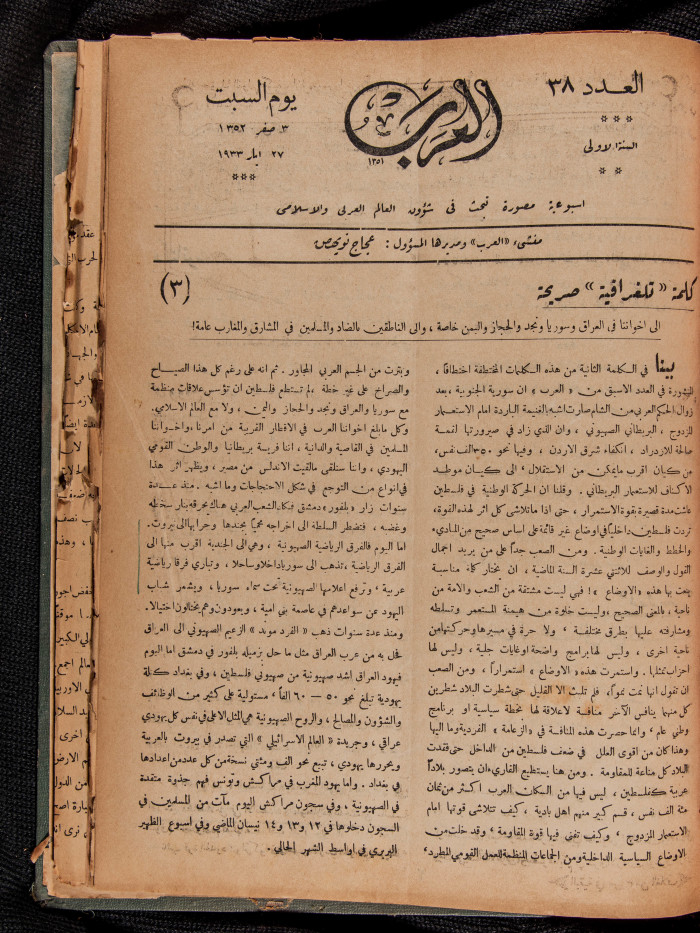 العدد ٣٨
السنة الاولى
العرب
١٣٥١
يوم السبت
٣ صفر ١٣٥٢
٢٧ ايار ١٩٣٣
اسبوعية مصورة تبحث فى شؤون العالم العربى والاسلامى
منشىء «العرب» ومديرها المسؤول : عجاج نويهض
كلمة «تلغرافية» صريحة
(٣)
الى اخواننا في العراق وسوريا ونجد والحجاز واليمن خاصة ، والى الناطقين بالضاد والمسلمين في المشارق والمغارب عامة!
بينا في الكلمة الثانية من هذه الكلمات المختطفة اختطافا ،
المنشورة في العدد الاسبق من « العرب » ان سورية الجنوبية ، بعد
زوال الحكم العربي من الشام صارت اشبه بالغنيمة الباردة امام الاستعمار
المزدوج ، البريطاني الصهيوني ، وان الذي زاد في صيرورتها لقمة
صالحة للازدراد ، انكفاء شرق الاردن ، وفيها نحو ٣٥٠ الف نفس ،
من كيان اقرب مايمكن من الاستقلال ، الى كيان موطد
الاكناف للاستعمار البريطاني . وقلنا ان الحركة الوطنية في فلسطين
عاشت مدة قصيرة بقوة الاستمرار ، حتى اذا ماتلاشى كل اثر لهذه القوة ،
تردت فلسطين داخلياً في اوضاع غير قائمة على اساس صحيح من المبادىء
والخطط والغايات الوطنية . ومن الصعب جداً على من يريد اجمال
القول والوصف للاثنتي عشرة السنة الماضية ، ان يختار كلمة مناسبة
ينعت بها هذه « الاوضاع »! فهي ليست مشتقة من الشعب والامة من
ناحية ، بالمعنى الصحيح ، وليست خلوة من هيمنة المستعمر وتسلطه
ومشارفته عليها بطرق مختلفة ، ولا حرة في مسيرها وحركيتها من
ناحية اخرى ، وليس لها برامج واضحة او غايات جلية ، وليس لها
احزاب تمثلها . واستمرت هذه « الاوضاع » استمراراً ، ومن الصعب
ان تقول انها نمت نمواً ، فلم تلبث الا القليل حتى شطرت البلاد شطرين
كل منهما ينافس الآخر منافسة لاعلاقة لها بخطة سياسية او برنامج
وطني عام ، وانما حصرت هذه المنافسة في « الزعامة » الفردية وما اليها
وهذا كان من اقوى العلل في ضعف فلسطين من الداخل حتى فقدت
البلاد كل مناعة للمقاومة . ومن هنا يستطيع القارىء ان يتصور بلاداً
عربية كفلسطين ، ليس فيها من السكان العرب اكثر من ثمان
مئة الف نفس ، قسم كبير منهم اهل بادية ، كيف تتلاشى قوتها امام
الاستعمار المزدوج ، وكيف تفنى فيها قوة المقاومة ، وقد خلت من
الاوضاع السياسية الداخلية ومن الجماعات المنظمة للعمل القومي المطرد،
وبترت من الجسم العربي المجاور . ثم انه على رغم كل هذا الصياح
والصراخ على غير خطة ، لم تستطع فلسطين ان تؤسس علاقات منظمة
مع سوريا والعراق ونجد والحجاز واليمن ، ولا مع العالم الاسلامي.
وكل مابلغ اخواننا العرب في الاقطار القريبة من امرنا ، واخواننا
المسلمين في القاصية والدانية ، اننا فريسة بريطانيا والوطن القومي
اليهودي ، واننا سنلقى مالقيت الاندلس من مصير ، ويظهر اثر هذا
في انواع من التوجع في شكل الاحتجاجات وما اشبه . منذ عدة
سنوات زار « بلفور » دمشق فكاد الشعب العربي هناك يحرقه بنار سخطه
وغضبه ، فتضطر السلطة الى اخراجه محمياً بجندها وحرابها الى بيروت .
اما اليوم فالفرق الرياضية الصهيونية ، وهي الى الجندية اقرب منها الى
الفرق الرياضية ، تذهب الى سوريا داخلا وساحلا ، وتباري فرقا رياضية
عربية ، وترفع اعلامها الصهيونية تحت سماء سوريا ، ويشمر شباب
اليهود عن سواعدهم في عاصمة بني امية ، ويعودون وهم يختالون اختيالا .
ومنذ عدة سنوات ذهب « الفرد موند » الزعيم الصهيوني الى العراق
فحل به من عرب العراق مثل ما حل بزميله بلفور في دمشق اما اليوم
فيهود العراق اشد صهيونية من صهيوني فلسطين ، وفي بغداد كتلة
يهودية تبلغ نحو ٥٠ — ٦٠ الفاً ، مستولية على كثير من الوظائف
والشؤون والمصالح ، والروح الصهيونية هي المثل الاعلى في نفس كل يهودي
عراقي ، وجريدة « العالم الاسرائيلي » التي تصدر في بيروت بالعربية
ويحررها يهودي ، تبيع نحو الف ومئتي نسخة من كل عدد من اعدادها
في بغداد . واما يهود المغرب في مراكش وتونس فهم جذوة متقدة
في الصهيونية ، وفي سجون مراكش اليوم مآت من المسلمين في
السجون دخلوها في ١٢ و١٣ و١٤ نيسان الماضي وفي اسبوع الظهير
البربري في اواسط الشهر الحالي .